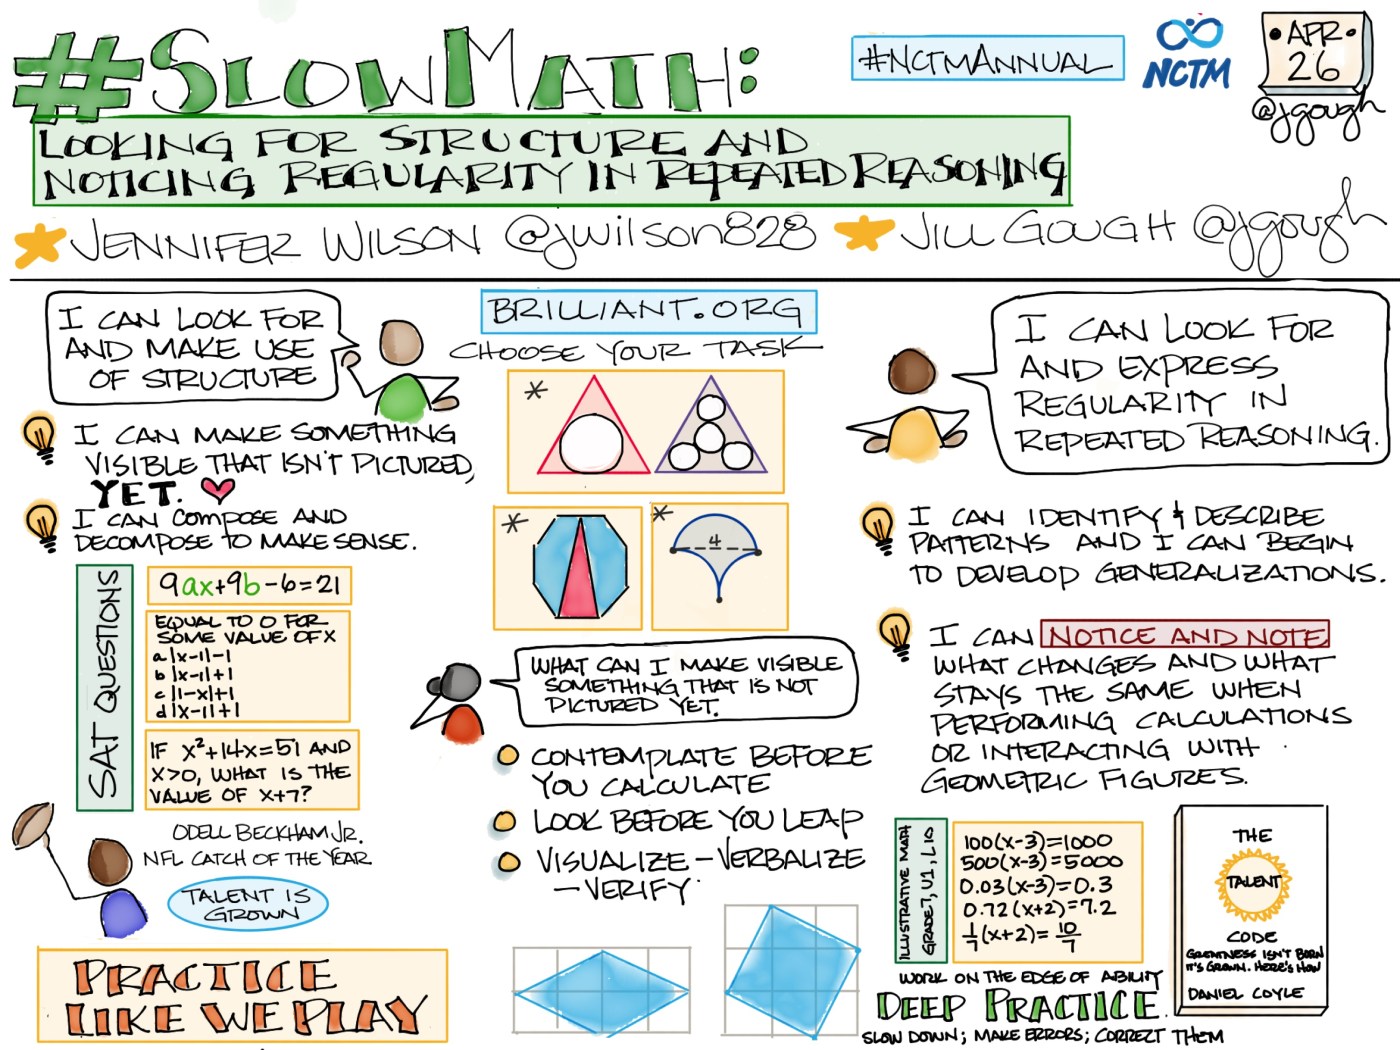 #SLOWMATH:
#NCTMANNUAL
NCTM
APR
26
@jgough
LOOKING FOR STRUCTURE AND
NOTICING REGULARITY IN REPEATED REASONING
JENNIFER WILSON @jwilson828
JILL GOUGH @jgough
I CAN LOOK FOR
AND MAKE USE
OF STRUCTURE
I CAN MAKE SOMETHING
VISIBLE THAT ISN'T PICTURED,
YET.
I CAN COMPOSE AND
DECOMPOSE TO MAKE SENSE.
SAT QUESTIONS
9ax+9b-6=21
EQUAL TO 0 FOR
SOME VALUE OF X
a |x-1|-1
b |x-1|+1
c |1-x|+1
d |x-1|+1
IF x²+14x=51 AND
X>0, WHAT IS THE
VALUE OF X+7?
ODELL BECKHAM JR.
NFL CATCH OF THE YEAR
TALENT IS
GROWN
PRACTICE
LIKE WE PLAY
BRILLIANT.ORG
CHOOSE YOUR TASK
4
WHAT CAN I MAKE VISIBLE
SOMETHING THAT IS NOT
PICTURED YET.
CONTEMPLATE BEFORE
YOU CALCULATE
LOOK BEFORE YOU LEAP
VISUALIZE - VERBALIZE
- VERIFY
I CAN LOOK FOR
AND EXPRESS
REGULARITY IN
REPEATED REASONING.
I CAN IDENTIFY & DESCRIBE
PATTERNS AND I CAN BEGIN
TO DEVELOP GENERALIZATIONS.
I CAN NOTICE AND NOTE
WHAT CHANGES AND WHAT
STAYS THE SAME WHEN
PERFORMING CALCULATIONS
OR INTERACTING WITH
GEOMETRIC FIGURES.
ILLUSTRATIVE MATH
GRADE 7, U1, L15
100(x-3)=1000
500(x-3)=5000
0.03(x-3)=0.3
0.72(x+2)=7.2
1/7(x+2)=10/7
THE
TALENT
CODE
GREATNESS ISN'T BORN
IT'S GROWN. HERE'S HOW
DANIEL COYLE
WORK ON THE EDGE OF ABILITY
DEEP PRACTICE
SLOW DOWN; MAKE ERRORS; CORRECT THEM